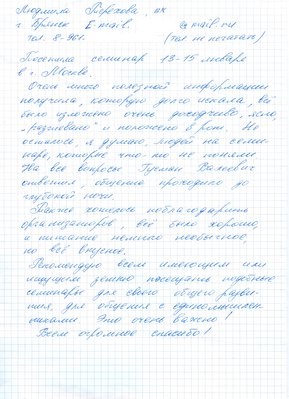 Людмила Терёхова,
г. Брянск E-mail: @mail.ru
тел. 8-961. (тел. не печатать)
Посетила семинар 13-15 января
в г. Москве.
Очень много полезной информации
получила, которую долго искала, всё
было изложено очень доходчиво, ясно,
"разжёвано" и положено в рот. Не
осталось, я думаю, людей на семи-
наре, которые что-то не поняли.
На все вопросы Руслан Валеевич
ответил, общение проходило до
глубокой ночи.
Также хочется поблагодарить
организаторов, всё было хорошо,
и питание немного необычное,
но всё вкусное.
Рекомендую всем имеющим или
ищущим землю посещать подобные
семинары для своего общего разви-
тия, для общения с единомышлен-
никами. Это очень важно!
Всем огромное спасибо!